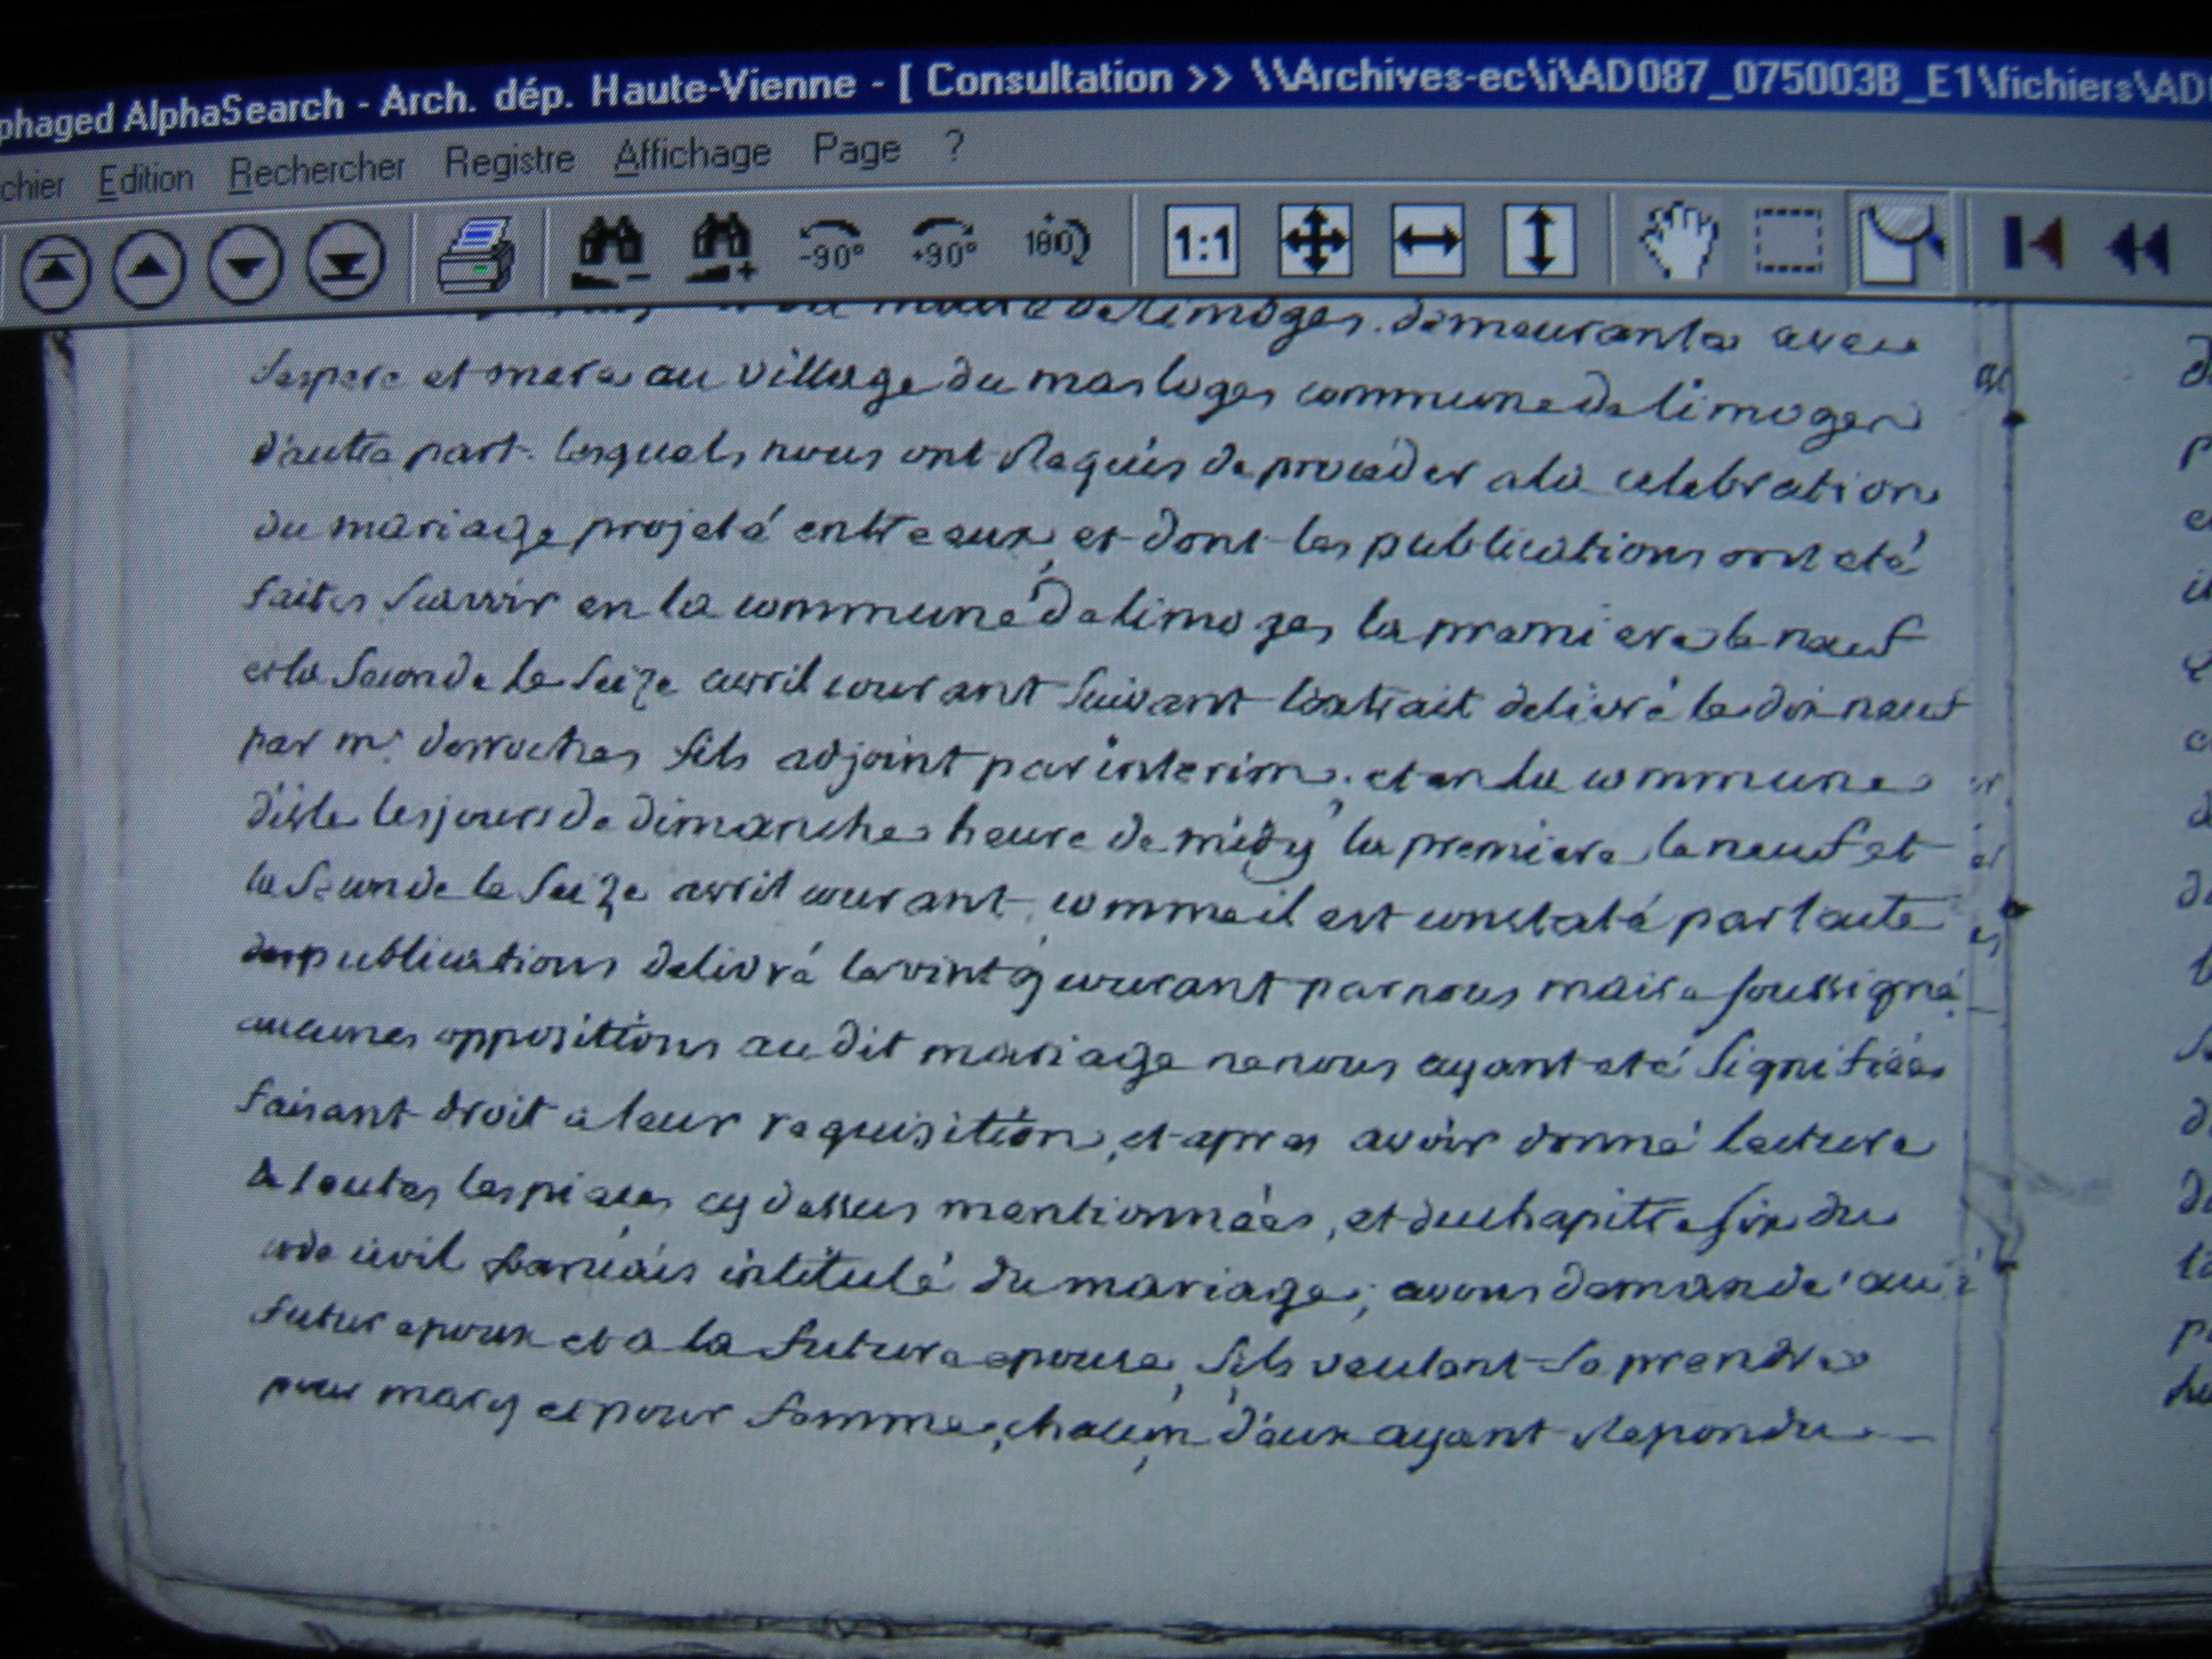 phaged AlphaSearch - Arch. dép. Haute-Vienne - [ Consultation >> \\Archives-ec\i\AD087_075003B_E1\fichiers\AD
chier Edition Rechercher Registre Affichage Page ?
-90° +90° 180 1:1
de limoges. demeurante avec
ses pere et mere au village du mas loges commune de limoges
d'autre part. lesquels nous ont Requis de proceder a la celebration
du mariage projeté entre eux, et dont les publications ont eté
faites scavoir en la commune de limoges, la premiere le neuf
et la seconde le seize avril courant suivant l'extrait delivré le dix neuf
par mr. desroches fils adjoint par interim. et en la commune
d'isle les jours de dimanche heure de midy la premiere le neuf et
la seconde le seize avril courant, comme il est constaté par l'acte
des publications delivré le vingt courant par nous maire soussigné
aucunes oppositions au dit mariage ne nous ayant eté signifiées
faisant droit a leur requisition, et apres avoir donné lecture
de toutes les pieces cy dessus mentionnées, et du chapitre six du
code civil francais intitulé du mariage, avons demandé au
futur epoux et a la future epouse, s'ils veulent se prendre
pour mary et pour femme, chacun d'eux ayant Repondu